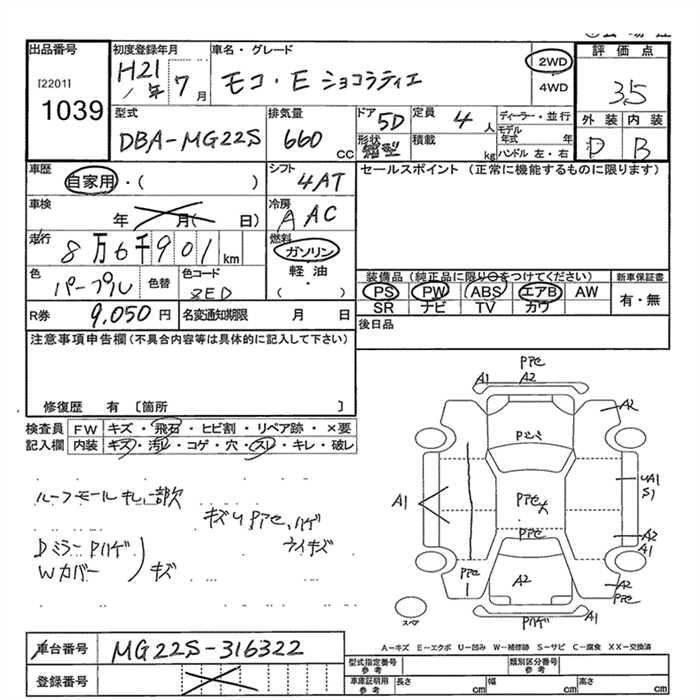 出品番号 初度登録年月 車名・グレード 評価点
[2201]
1039
H21年 7月 モコ・E ショコラティエ 2WD 4WD 3.5
型式 排気量 ドア 定員 ディーラー・並行 外装 内装
DBA-MG22S 660 CC 5D 4人 モデル年式 年 D B
形状 箱型 積載 kg ハンドル 左・右
車歴 シフト セールスポイント (正常に機能するものに限ります)
自家用・( ) 4AT
車検 年 月( 日) 冷房 AAC
走行 8万6千901km 燃料 ガソリン
軽油
( ・ )
色 パープル 色替 色コード ZED
装備品 (純正品に限り○をつけてください) 新車保証書
PS PW ABS エアB AW 有・無
SR ナビ TV カワ
R券 9,050円 名変通知期限 月 日 後日品
注意事項申告欄(不具合内容等は具体的に記入して下さい)
修復歴 有 〔箇所 〕
検査員 FW キズ・飛石・ヒビ割・リペア跡・×要
記入欄 内装 キズ・汚レ・コゲ・穴・スレ・キレ・破レ
ルーフモール キレ一部欠
キズUPアセ、ハゲ
ライキズ
Dミラー Pハゲ
Wカバー キズ
Pアセ
A1 A2
A2
Pジミ
UA1
S1
A1 Pアセ大
Pアセ
A2
A1
Pアセ
1
A2
A2
Pアセ
スペア Pハゲ
A-キズ E-エクボ U-凹み W-補修跡 S-サビ C-腐食 XX-交換済
車台番号 MG22S-316322
登録番号
型式指定番号 参考 類別区分番号 参考
車庫証明用 参考 長さ cm 幅 cm 高さ cm